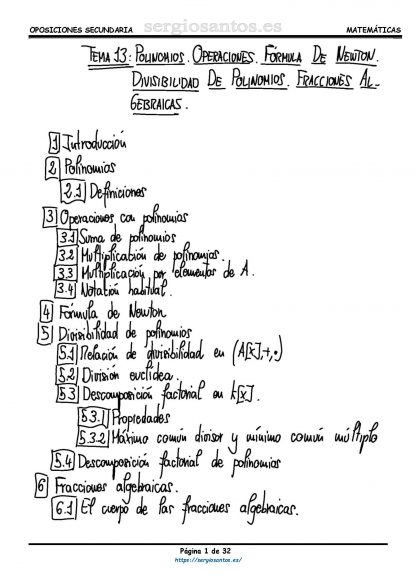 OPOSICIONES SECUNDARIA sergiosantos.es MATEMÁTICAS
TEMA 13: POLINOMIOS. OPERACIONES. FÓRMULA DE NEWTON.
DIVISIBILIDAD DE POLINOMIOS. FRACCIONES AL-
GEBRAICAS.
1 Introducción
2 Polinomios
2.1 Definiciones
3 Operaciones con polinomios
3.1 Suma de polinomios
3.2 Multiplicación de polinomios.
3.3 Multiplicación por elementos de A.
3.4 Notación habitual.
4 Fórmula de Newton
5 Divisibilidad de polinomios
5.1 Relación de divisibilidad en (A[x],+,·)
5.2 División euclídea.
5.3 Descomposición factorial en k[x].
5.3.1 Propiedades
5.3.2 Máximo común divisor y mínimo común múltiplo
5.4 Descomposición factorial de polinomios
6 Fracciones algebraicas.
6.1 El cuerpo de las fracciones algebraicas.
Página 1 de 32
https://sergiosantos.es/